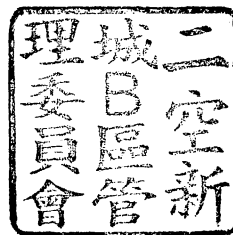 二空新
城B區管
理委員會